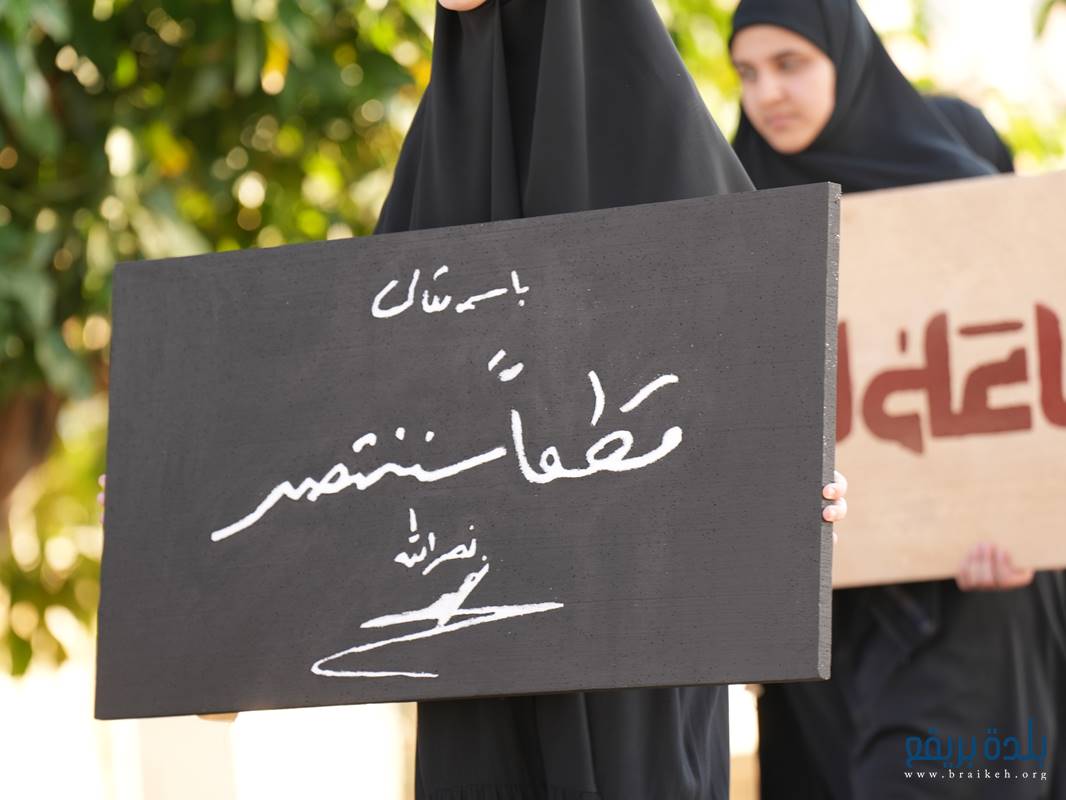 باسمه تعالى
قطعاً سننتصر
نصر الله
بلدة بريقع
www.braikeh.org